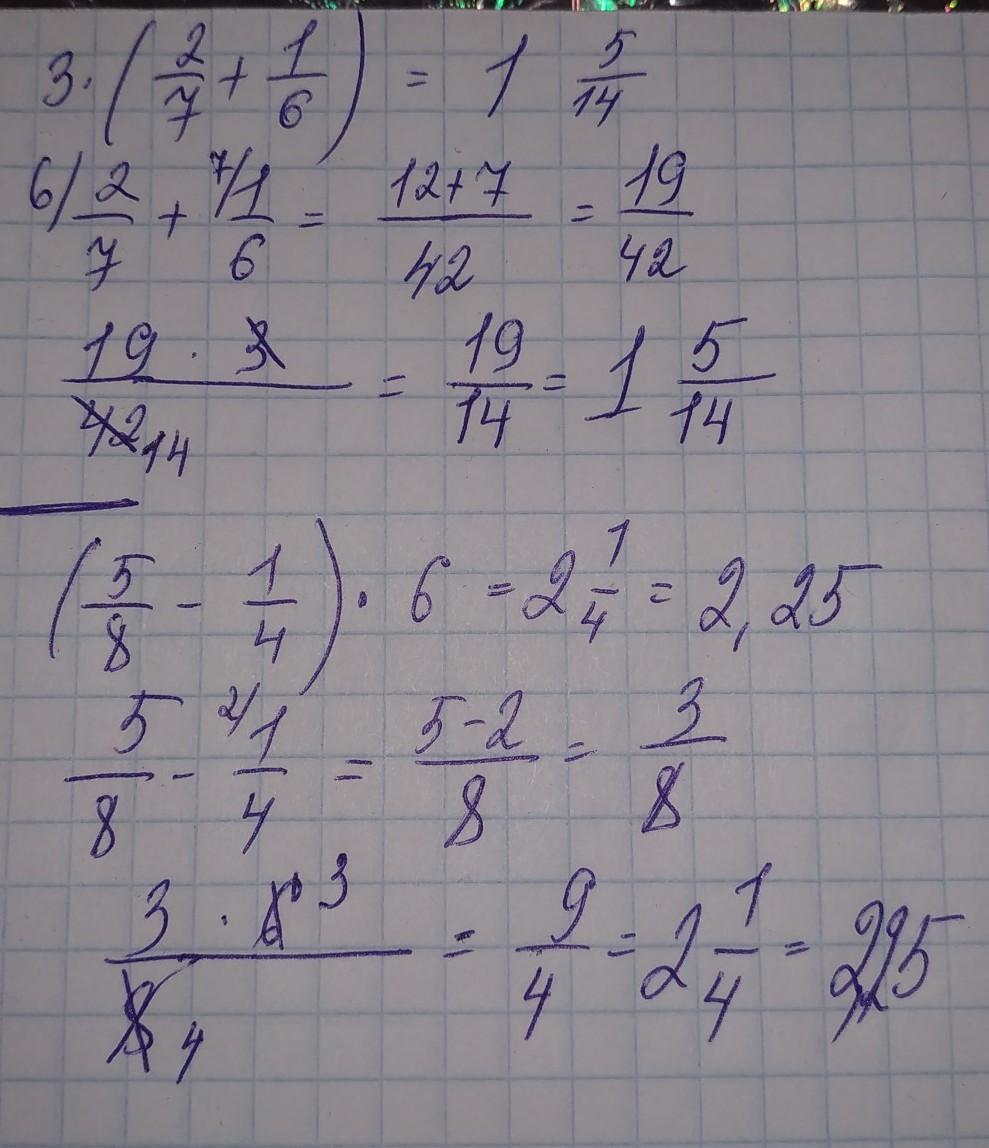 3·(2/7 + 1/6) = 1 5/14
6/ 2/7 + 7/ 1/6 = 12+7/42 = 19/42
19 · 3/42 14 = 19/14 = 1 5/14
(5/8 - 1/4) · 6 = 2 1/4 = 2,25
5/8 - 2/ 1/4 = 5-2/8 = 3/8
3 · 6 3/8 4 = 9/4 = 2 1/4 = 2,25